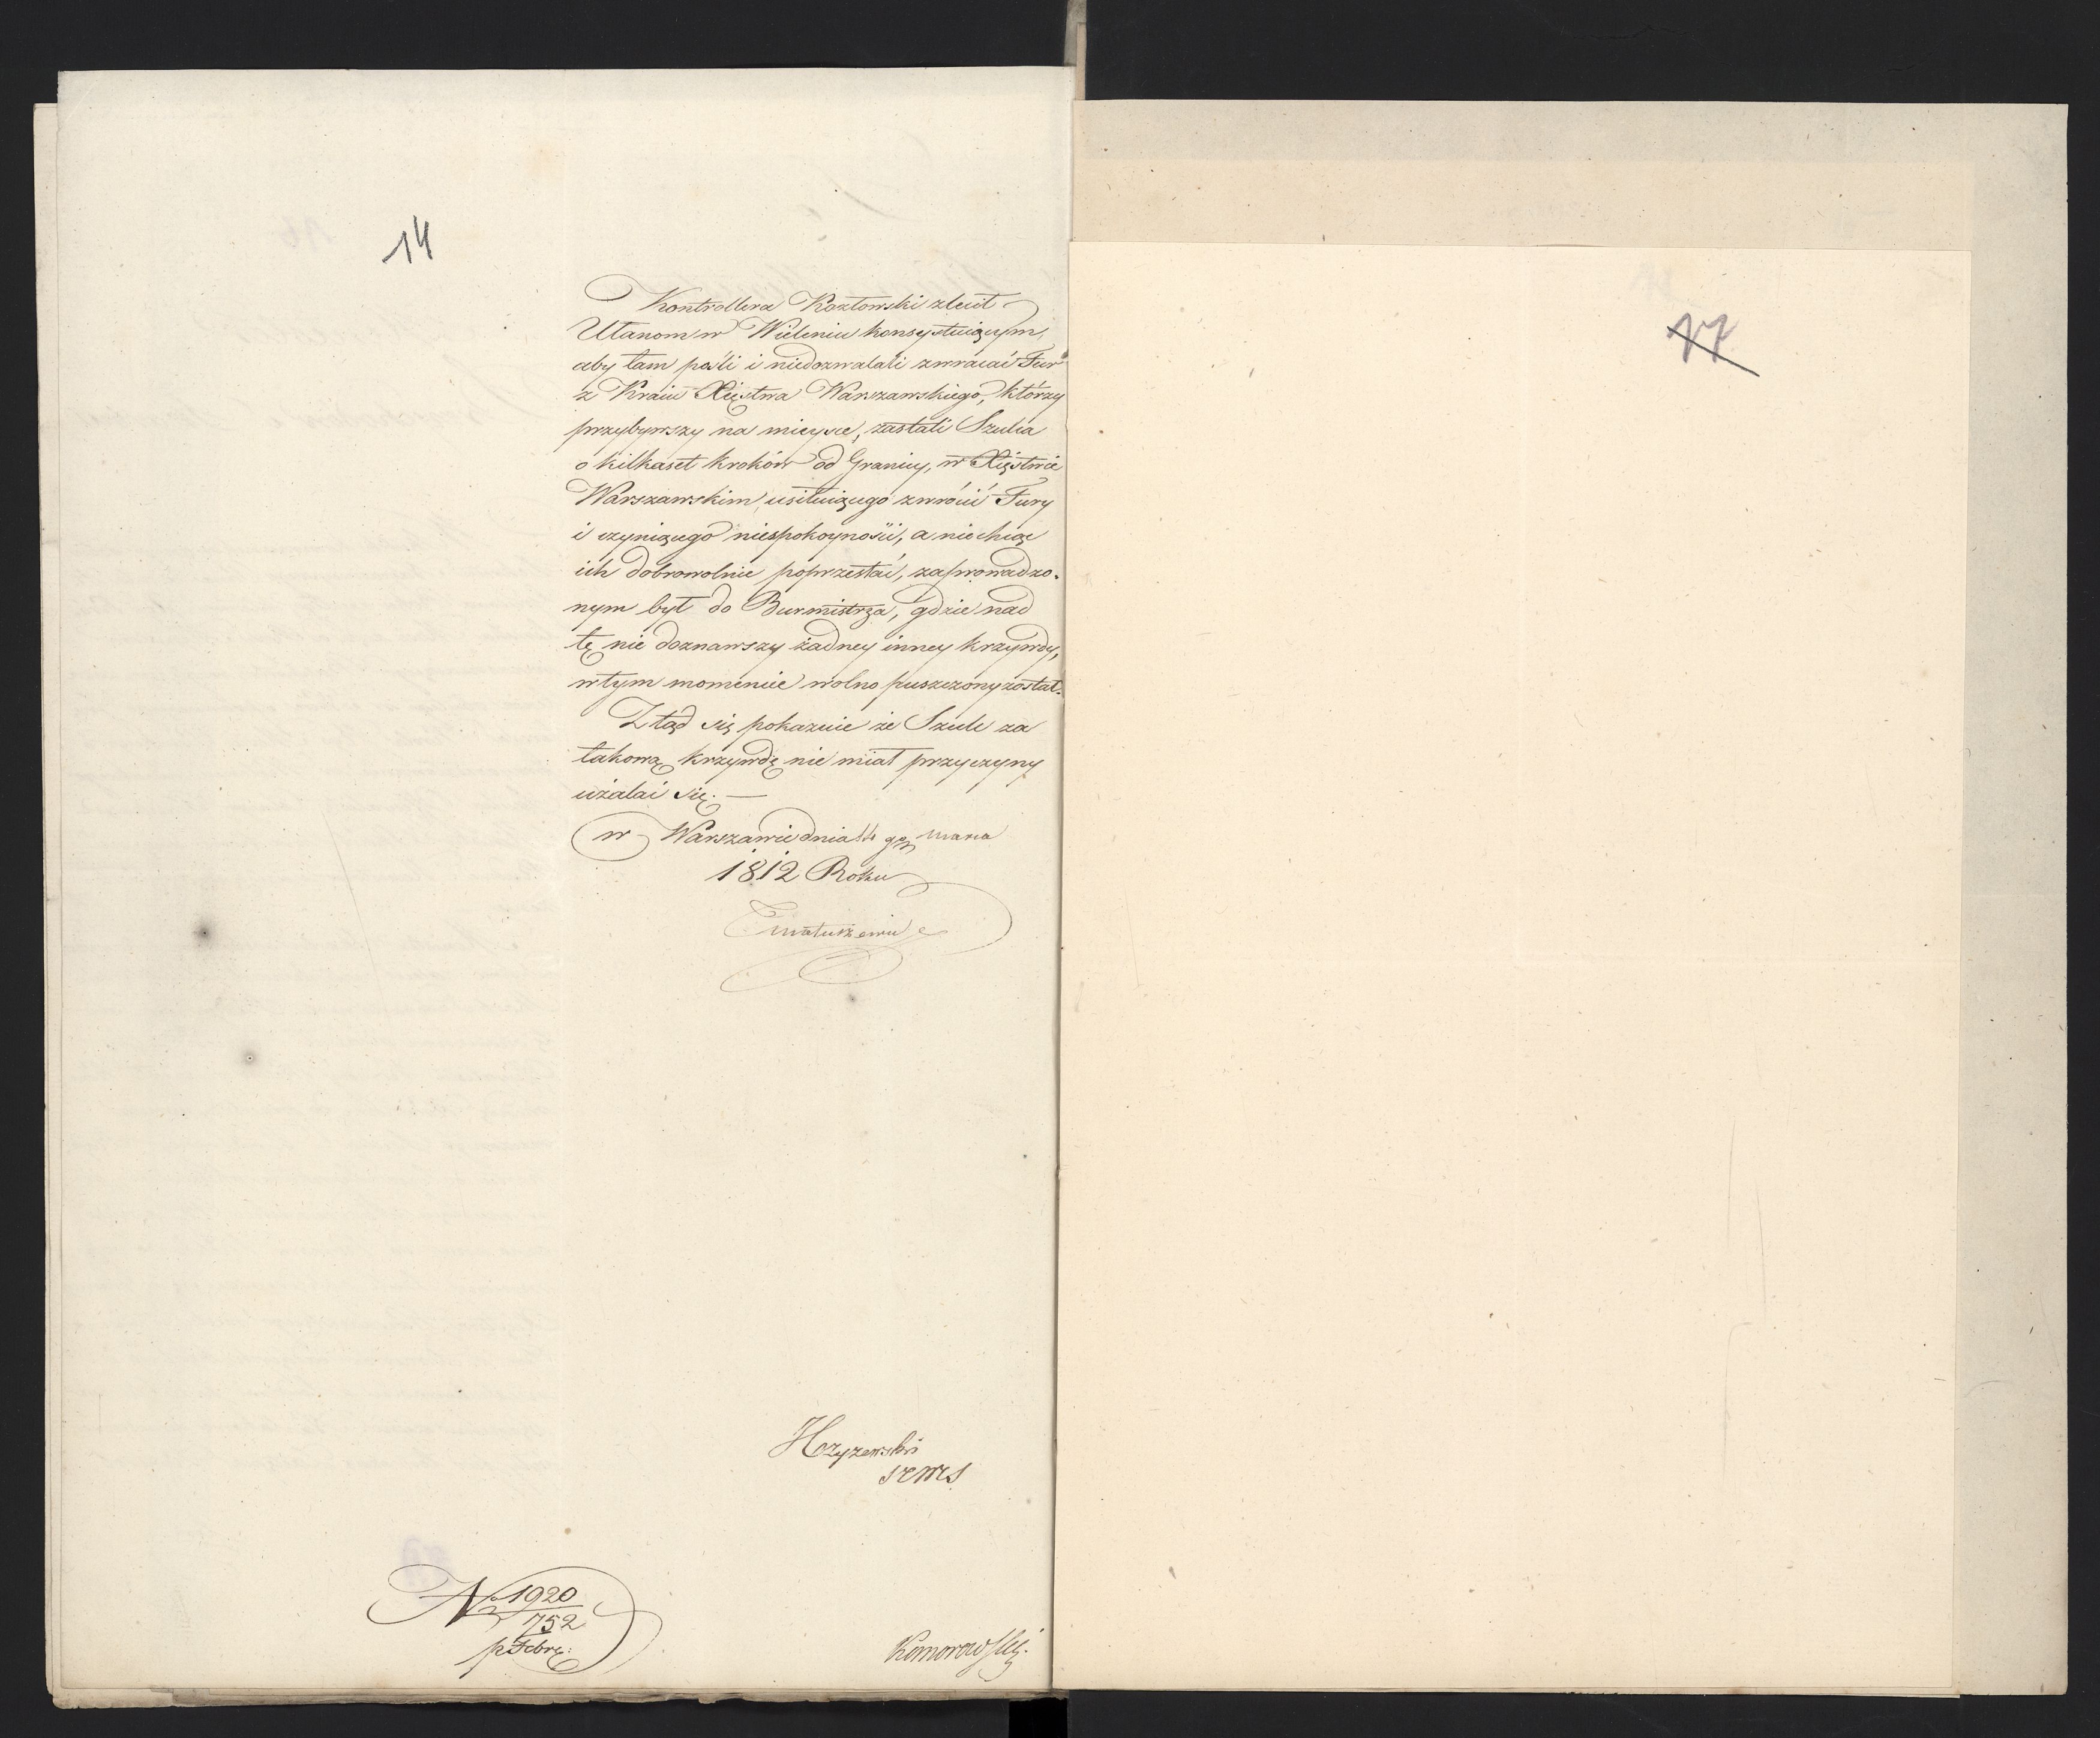 14
Kontrollera Kozłowski zlecił
Ułanom w Wieleniu konsystuiącym,
aby tam pośli i niedozwalali zwracać Fur
z Kraiu Xięstwa Warszawskiego, którzy
przybywszy na mieysce, zastali Szulca
o kilkaset kroków od Granicy, w Xięstwie
Warszawskim, usiłuiącego zwrócić Fury
i czyniącego niespokoyności, a niechcąc
ich dobrowolnie poprzestać, zaprowadzo-
nym był do Burmistrza, gdzie nad
tę nie doznawszy żadney inney krzywdy,
w tym momencie wolno puszczony został.
Ztąd się pokazuie że Szulc za
takową krzywdę nie miał przyczyny
użalać się. —
w Warszawie dnia 14 go Marca
1812 Roku
Matuszewic
Komorowski
No 1920
752
p Febr:
17